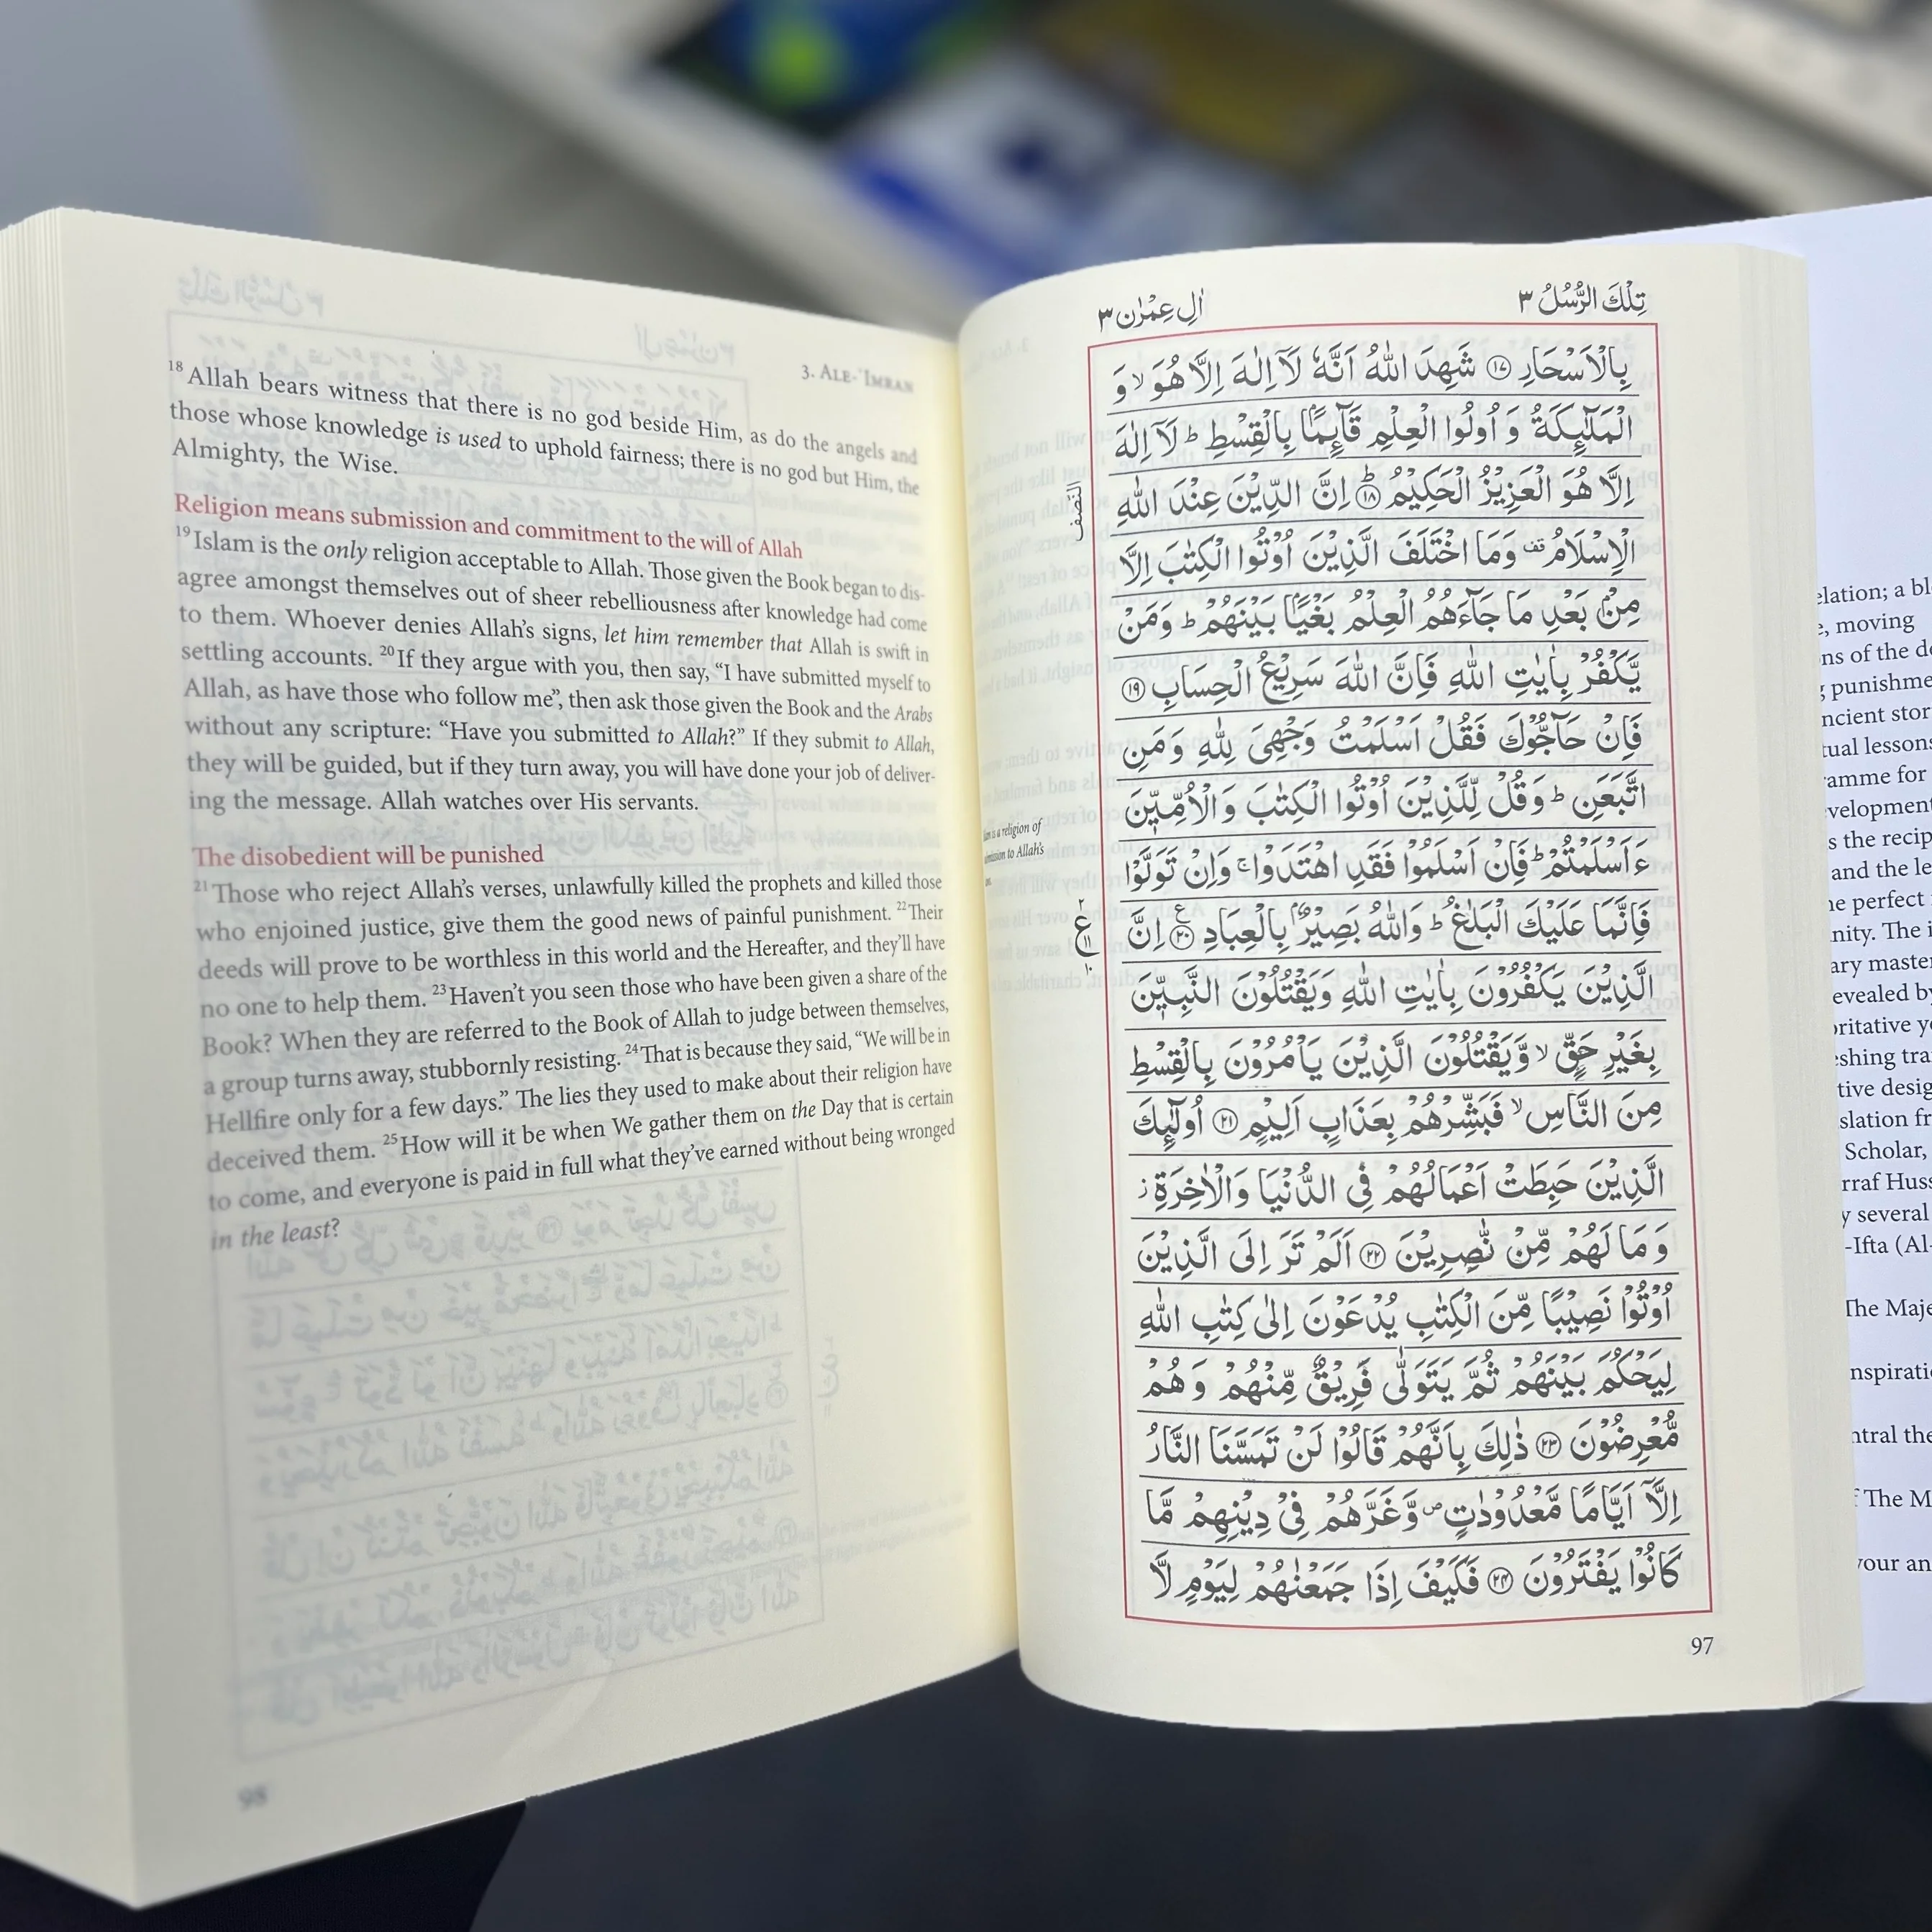 3. Ale-ʿImran
18Allah bears witness that there is no god beside Him, as do the angels and
those whose knowledge is used to uphold fairness; there is no god but Him, the
Almighty, the Wise.
Religion means submission and commitment to the will of Allah
19Islam is the only religion acceptable to Allah. Those given the Book began to dis-
agree amongst themselves out of sheer rebelliousness after knowledge had come
to them. Whoever denies Allah's signs, let him remember that Allah is swift in
settling accounts. 20If they argue with you, then say, “I have submitted myself to
Allah, as have those who follow me”, then ask those given the Book and the Arabs
without any scripture: “Have you submitted to Allah?” If they submit to Allah,
they will be guided, but if they turn away, you will have done your job of deliver-
ing the message. Allah watches over His servants.
The disobedient will be punished
21Those who reject Allah's verses, unlawfully killed the prophets and killed those
who enjoined justice, give them the good news of painful punishment. 22Their
deeds will prove to be worthless in this world and the Hereafter, and they'll have
no one to help them. 23Haven't you seen those who have been given a share of the
Book? When they are referred to the Book of Allah to judge between themselves,
a group turns away, stubbornly resisting. 24That is because they said, “We will be in
Hellfire only for a few days.” The lies they used to make about their religion have
deceived them. 25How will it be when We gather them on the Day that is certain
to come, and everyone is paid in full what they've earned without being wronged
in the least?
تِلْكَ الرُّسُلُ ٣
اٰلِ عِمْرٰن ٣
بِالْاَسْحَارِ ⑰ شَهِدَ اللّٰهُ اَنَّهٗ لَاۤ اِلٰهَ اِلَّا هُوَ ۙ وَ
الْمَلٰٓىِٕكَةُ وَ اُولُوا الْعِلْمِ قَآىِٕمًۢا بِالْقِسْطِ ؕ لَاۤ اِلٰهَ
اِلَّا هُوَ الْعَزِيْزُ الْحَكِيْمُ ؕ ⑱ اِنَّ الدِّيْنَ عِنْدَ اللّٰهِ
النصف
الْاِسْلَامُ ۫ وَمَا اخْتَلَفَ الَّذِيْنَ اُوْتُوا الْكِتٰبَ اِلَّا
مِنْۢ بَعْدِ مَا جَآءَهُمُ الْعِلْمُ بَغْيًۢا بَيْنَهُمْ ؕ وَمَنْ
يَّكْفُرْ بِاٰيٰتِ اللّٰهِ فَاِنَّ اللّٰهَ سَرِيْعُ الْحِسَابِ ⑲
فَاِنْ حَآجُّوْكَ فَقُلْ اَسْلَمْتُ وَجْهِيَ لِلّٰهِ وَ مَنِ
اتَّبَعَنِ ؕ وَقُلْ لِّلَّذِيْنَ اُوْتُوا الْكِتٰبَ وَالْاُمِّيّٖنَ
ءَاَسْلَمْتُمْ ؕ فَاِنْ اَسْلَمُوْا فَقَدِ اهْتَدَوْا ۚ وَاِنْ تَوَلَّوْا
فَاِنَّمَا عَلَيْكَ الْبَلٰغُ ؕ وَاللّٰهُ بَصِيْرٌۢ بِالْعِبَادِ ⑳ اِنَّ
الَّذِيْنَ يَكْفُرُوْنَ بِاٰيٰتِ اللّٰهِ وَيَقْتُلُوْنَ النَّبِيّٖنَ
بِغَيْرِ حَقٍّ ۙ وَّيَقْتُلُوْنَ الَّذِيْنَ يَاْمُرُوْنَ بِالْقِسْطِ
مِنَ النَّاسِ ۙ فَبَشِّرْهُمْ بِعَذَابٍ اَلِيْمٍ ㉑ اُولٰٓىِٕكَ
الَّذِيْنَ حَبِطَتْ اَعْمَالُهُمْ فِي الدُّنْيَا وَالْاٰخِرَةِ ز
وَ مَا لَهُمْ مِّنْ نّٰصِرِيْنَ ㉒ اَلَمْ تَرَ اِلَى الَّذِيْنَ
اُوْتُوْا نَصِيْبًا مِّنَ الْكِتٰبِ يُدْعَوْنَ اِلٰى كِتٰبِ اللّٰهِ
لِيَحْكُمَ بَيْنَهُمْ ثُمَّ يَتَوَلّٰى فَرِيْقٌ مِّنْهُمْ وَ هُمْ
مُّعْرِضُوْنَ ㉓ ذٰلِكَ بِاَنَّهُمْ قَالُوْا لَنْ تَمَسَّنَا النَّارُ
اِلَّاۤ اَيَّامًا مَّعْدُوْدٰتٍ ۪ وَّغَرَّهُمْ فِيْ دِيْنِهِمْ مَّا
كَانُوْا يَفْتَرُوْنَ ㉔ فَكَيْفَ اِذَا جَمَعْنٰهُمْ لِيَوْمٍ لَّا
97
is a religion of
to Allah's
moving
of the
punishme
the recip
and the le
perfect
nity. The
slation
Scholar,
several
-Ifta (Al-
The Maje
The M
your an